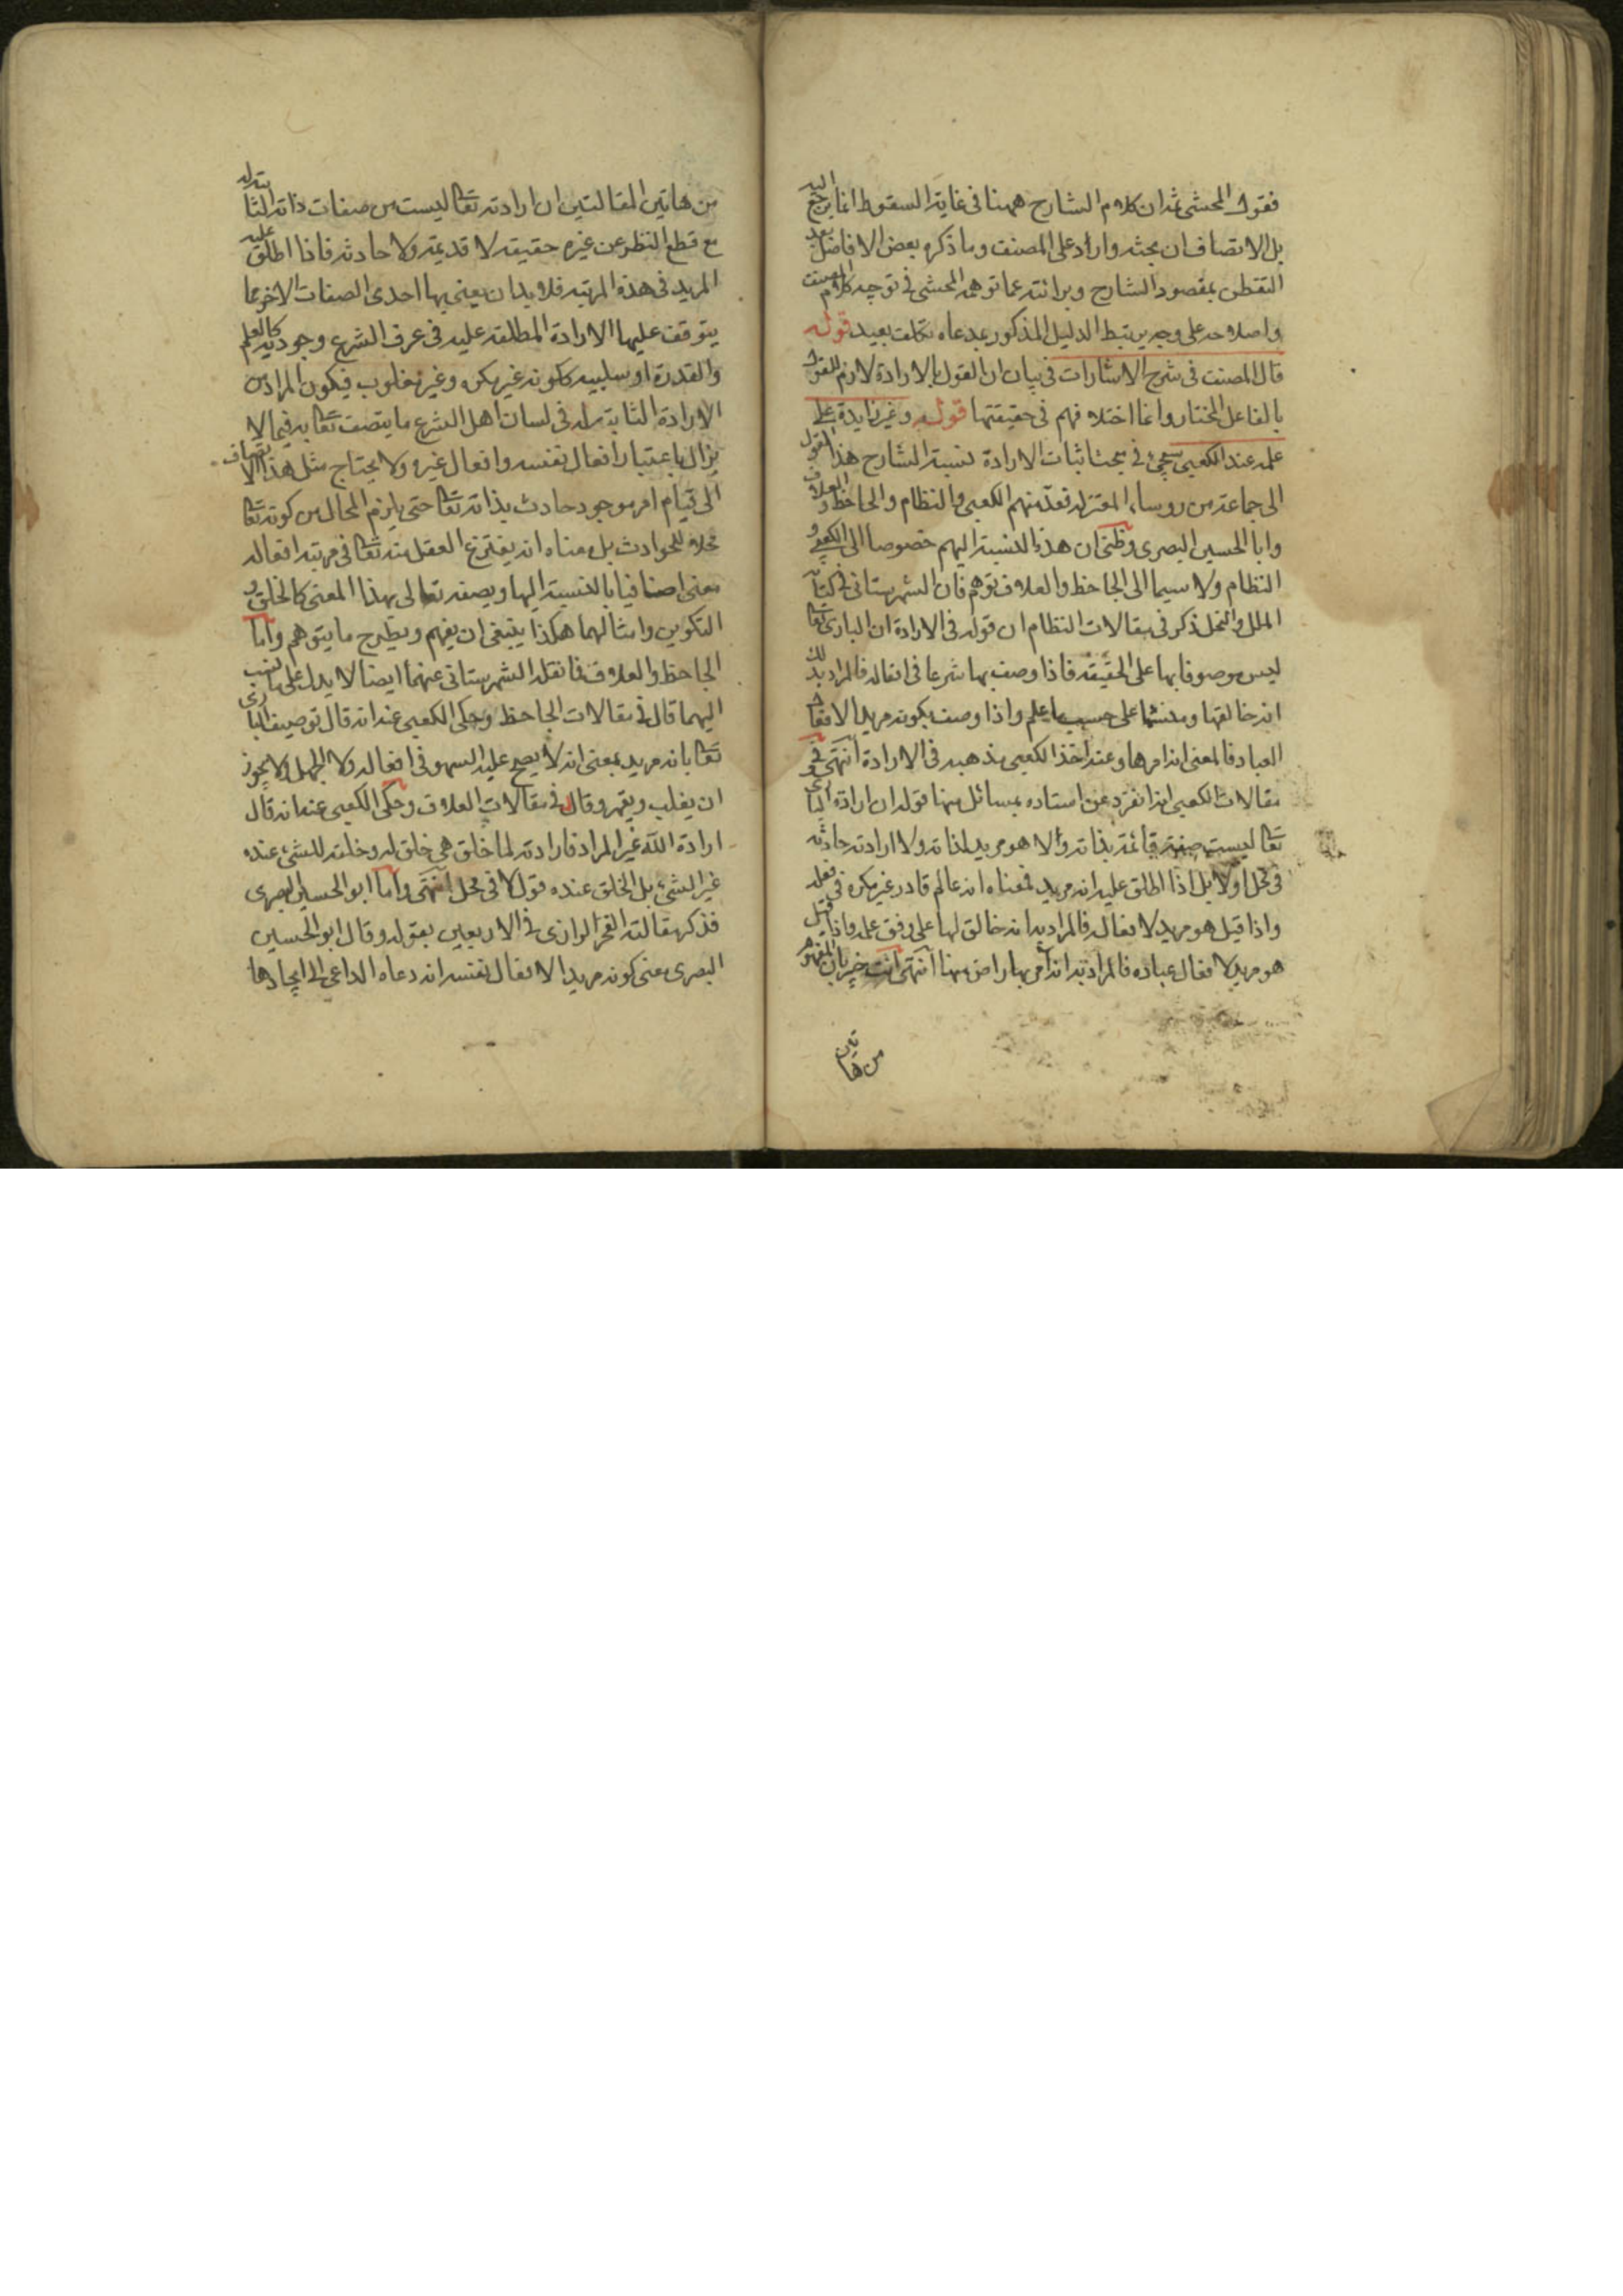 فقول المحشى ثم ان كلام الشارح ههنا فى غاية السقوط انما يرجع اليه
بل الانصاف ان بحثه وارد على المصنف وما ذكره بعض الافاضل بعد
التفطن بمقصود الشارح وبرائته عما توهمه المحشى فى توجيه كلام المصنف
واصلاحه على وجه يرتبط الدليل المذكور بمدعاه تكلف بعيد قوله
قال المصنف فى شرح الاشارات فى بيان ان القول بالارادة لازم للقول
بالفاعل المختار وانما اختلافهم فى حقيقتها قوله وغير زايدة على
علمه عند الكعبى سيجئ فى مبحث اثبات الارادة نسبة الشارح هذا القول
الى جماعة من روساء المعتزله فعد منهم الكعبى والنظام والجاحظ والعلاف
وابا الحسين البصرى وظنى ان هذه النسبة اليهم خصوصا الى الكعبى و
النظام ولا سيما الى الجاحظ والعلاف توهم فان الشهرستانى فى كتاب
الملل والنحل ذكر فى مقالات النظام ان قوله فى الارادة ان البارى تعا
ليس موصوفا بها على الحقيقه فاذا وصف بها شرعا فى افعاله فالمراد بذلك
انه خالقها ومنشئها على حسب ما علم واذا وصف بكونه مريدا لافعال
العباد فالمعنى انه امر بها وعنه اخذ الكعبى مذهبه فى الارادة انتهى وفى
مقالات الكعبى انه انفرد عن استاده بمسائل منها قوله ان ارادة البارى
تعا ليست صفة قائمة بذاته ولا هو مريد لذاته ولا ارادته حادثه
فى محل اولا بل اذا اطلق عليه انه مريد فمعناه انه عالم قادر غير مكره فى فعله
واذا قيل هو مريد لافعاله فالمراد به انه خالق لها على وفق علمه واذا قيل
هو مريد لافعال عباده فالمراد به انه امر بها راض عنها انتهى انت خبير بان المفهوم
من هاتين
من هاتين المقالتين ان ارادته تعا ليست من صفات ذاته الثابتة له
مع قطع النظر عن غيره حقيقه لا قديمة ولا حادثه فاذا اطلق عليه
المريد فى هذه المرتبه فلا بد ان يعنى بها احدى الصفات الاخر مما
يتوقف عليها الارادة المطلقه عليه فى عرف الشرع وجوديه كالعلم
والقدرة او سلبيه ككونه غير مكره وغير مغلوب فيكون المراد من
الارادة الثابته له فى لسان اهل الشرع ما يتصف تعا به فيما لا
يزال باعتبار افعال نفسه وافعال غيره ولا يحتاج مثل هذا الاتصاف
الى قيام امر موجود حادث بذاته تعا حتى يلزم المحال من كونه تعا
محلا للحوادث بل معناه انه ينتزع العقل منه تعا فى مرتبه افعاله
معنى اضافيا بالنسبة اليها ويصفه تعالى بهذا المعنى كالخلق و
التكوين وامثالهما هكذا ينبغى ان يفهم ويطرح ما يتوهم واما
الجاحظ والعلاف فما نقله الشهرستانى عنهما ايضا لا يدل على ما نسب
اليهما قال فى مقالات الجاحظ وحكى الكعبى عنه انه قال توصيف البارى
تعا بانه مريد بمعنى انه لا يصح عليه السهو فى افعاله ولا الجهل ولا يجوز
ان يغلب ويقهر وقال فى مقالات العلاف وحكى الكعبى عنه انه قال
ارادة الله غير المراد فارادته لما خلق هى خلق له وخلقه للشئ عنده
غير الشئ بل الخلق عنده قول لا فى محل انتهى واما ابو الحسين البصرى
فذكر مقالته الفخر الرازى فى الاربعين بقوله وقال ابو الحسين
البصرى معنى كونه مريدا لافعال نفسه انه دعاه الداعى الى ايجادها